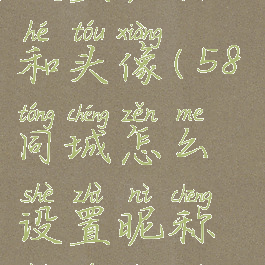 hé tóu xiàng
和头像(58
tóng chéng zěn me
同城怎么
shè zhì nì chēng
设置昵称